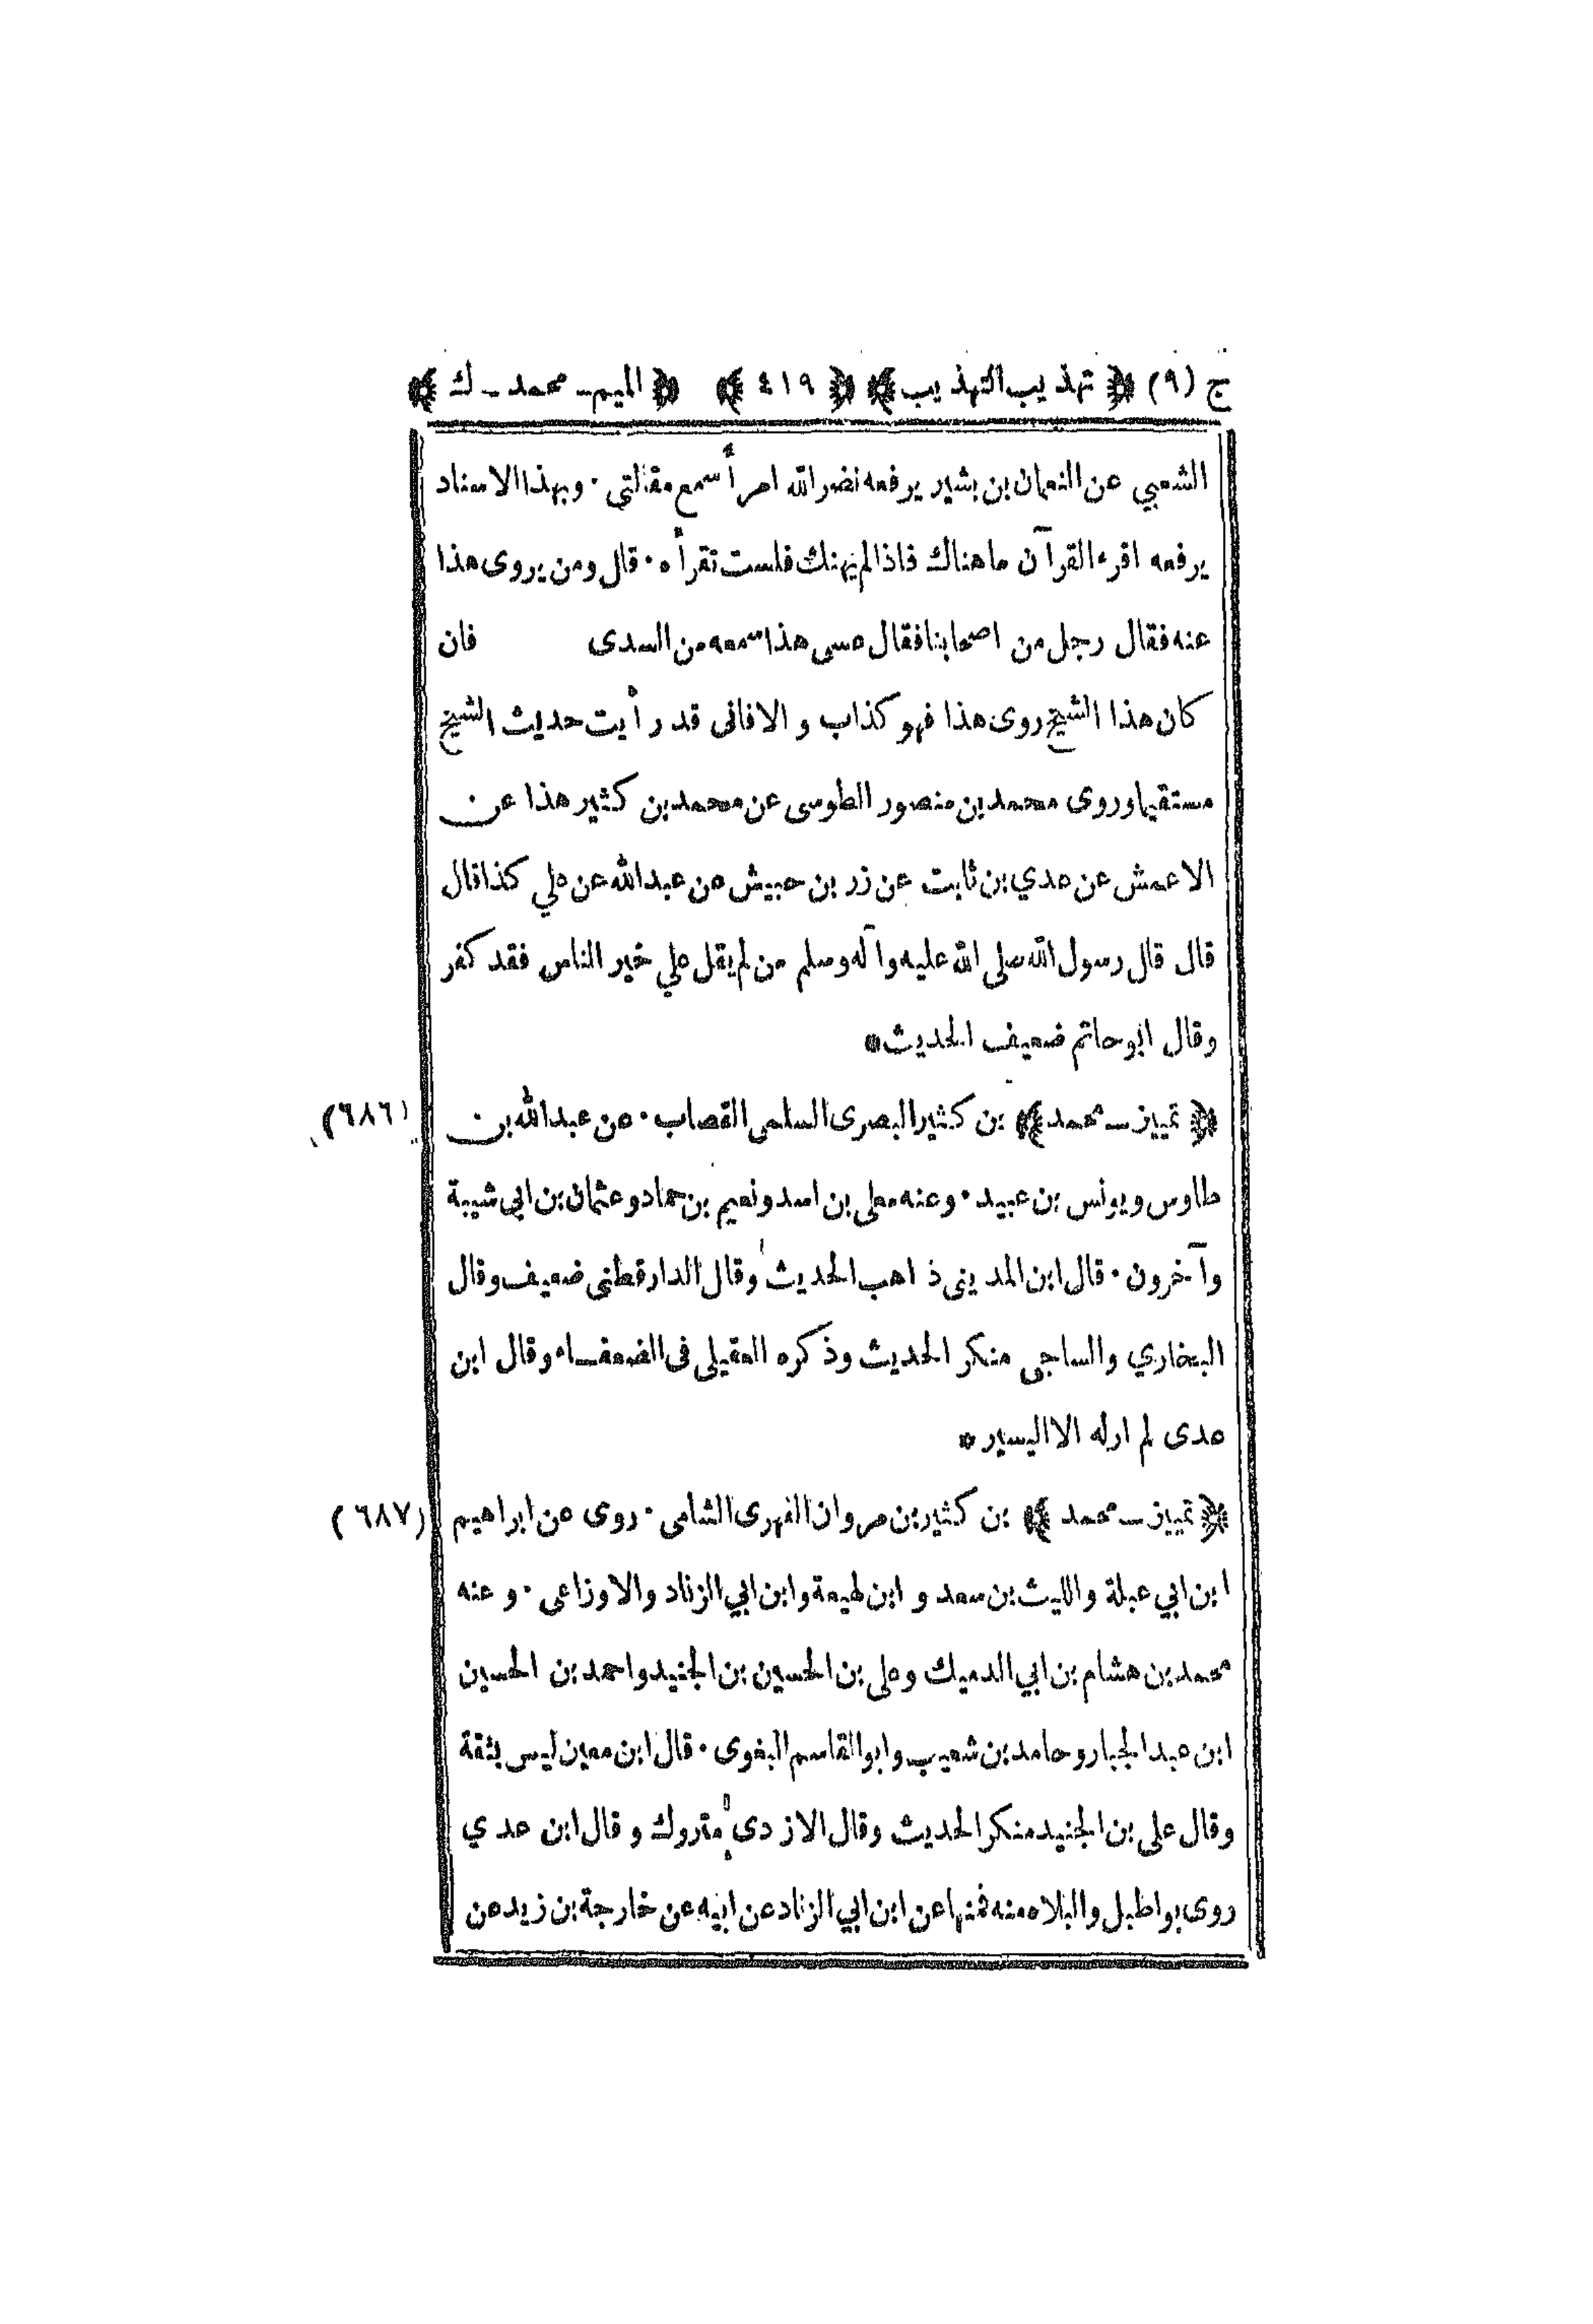 ج (٩) ﴿ تهذيب التهذيب ﴾ ﴿ ٤١٩ ﴾ ﴿ الميم - محمد - ك ﴾
الشعبي عن النعمان بن بشير يرفعه نضر الله امرأ سمع مقالتي . وبهذا الاسناد
يرفعه اقرء القرآن ما هناك فاذا لم ينهك فلست تقرأه . قال ومن يروى هذا
عنه فقال رجل من اصحابنا فقال عسى هذا سمعه من السدى فان
كان هذا الشيخ روى هذا فهو كذاب والا فانى قد رأيت حديث الشيخ
مستقيما وروى محمد بن منصور الطوسى عن محمد بن كثير هذا عن
الاعمش عن عدي بن ثابت عن زر بن حبيش عن عبد الله عن علي كذا قال
قال قال رسول الله صلى الله عليه وآله وسلم من لم يقل علي خير الناس فقد كفر
وقال ابو حاتم ضعيف الحديث *
(٦٨٦) ﴿ تمييز - محمد ﴾ بن كثير البصرى السلمى القصاب . عن عبد الله بن
طاوس ويونس بن عبيد . وعنه معلى بن اسد ونعيم بن حماد وعثمان بن ابي شيبة
وآخرون . قال ابن المدينى ذاهب الحديث وقال الدارقطنى ضعيف وقال
البخاري والساجى منكر الحديث وذكره العقيلى فى الضعفاء وقال ابن
عدى لم ار له الا اليسير *
(٦٨٧) ﴿ تمييز - محمد ﴾ بن كثير بن مروان الفهرى الشامى . روى عن ابراهيم
ابن ابي عبلة والليث بن سعد و ابن لهيعة وابن ابي الزناد والاوزاعى . و عنه
محمد بن هشام بن ابي الدميك وعلى بن الحسين بن الجنيد واحمد بن الحسين
ابن عبد الجبار وحامد بن شعيب وابو القاسم البغوى . قال ابن معين ليس بثقة
وقال على بن الجنيد منكر الحديث وقال الازدى متروك و قال ابن عدي
روى بواطيل والبلاء منه فمنها عن ابن ابي الزناد عن ابيه عن خارجة بن زيد عن